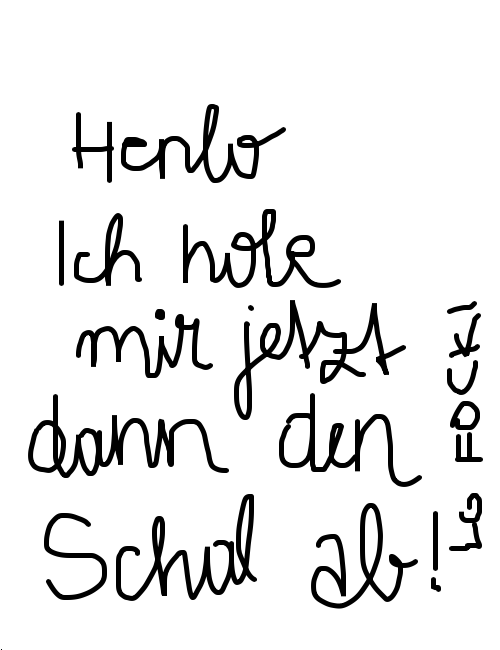 Henlo
Ich hole
mir jetzt
dann den
Schal ab!
LG FOCKI